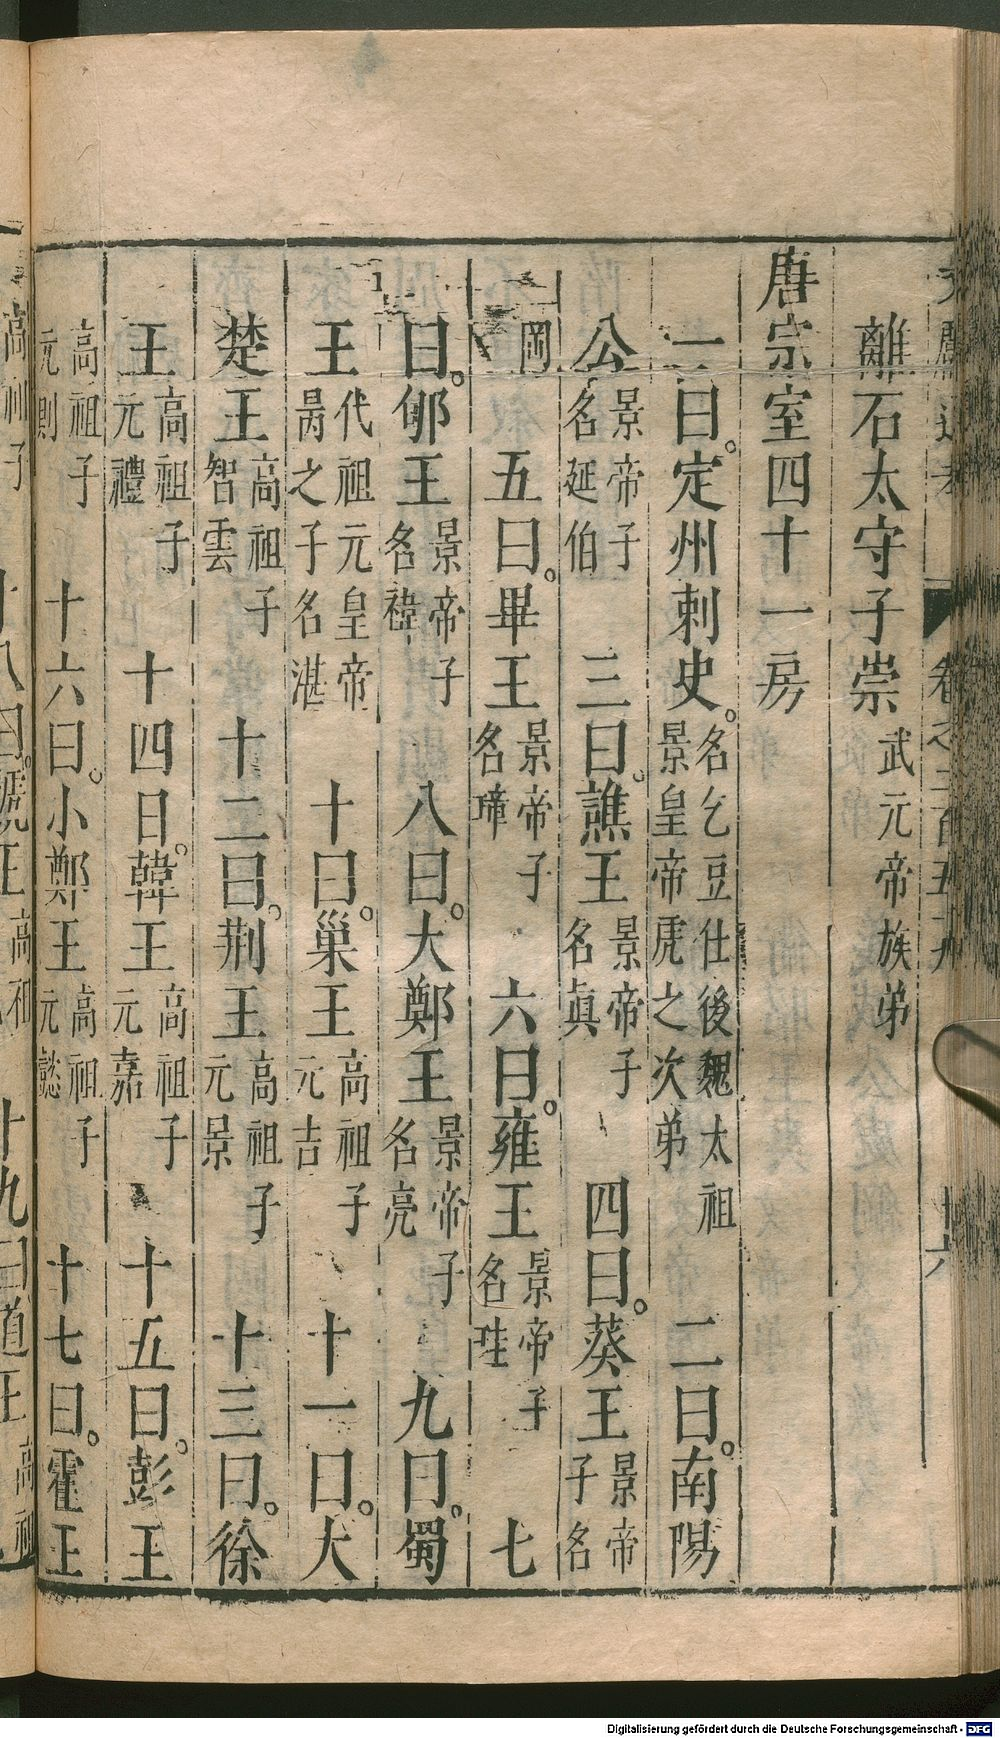 離石太守子崇武元帝族弟
唐宗室四十一房
一曰定州刺史名乞豆仕後魏太祖景皇帝虎之次弟 二曰南陽
公景帝子名延伯 三曰譙王景帝子名眞 四曰蔡王景帝子名
岡 五曰畢王景帝子名璋 六曰雍王景帝子名哇 七
曰郇王景帝子名禕 八曰大鄭王景帝子名亮 九曰蜀
王代祖元皇帝昺之子名湛 十曰巢王高祖子元吉 十一曰大
楚王高祖子智雲 十二曰荆王高祖子元景 十三曰徐
王高祖子元禮 十四曰韓王高祖子元嘉 十五曰彭王
高祖子元則 十六曰小鄭王高祖子元懿 十七曰霍王
高祖子 十八曰虢王高祖 十九曰道王高祖
卷之二百五十九
廿六
Digitalisierung gefördert durch die Deutsche Forschungsgemeinschaft - DFG